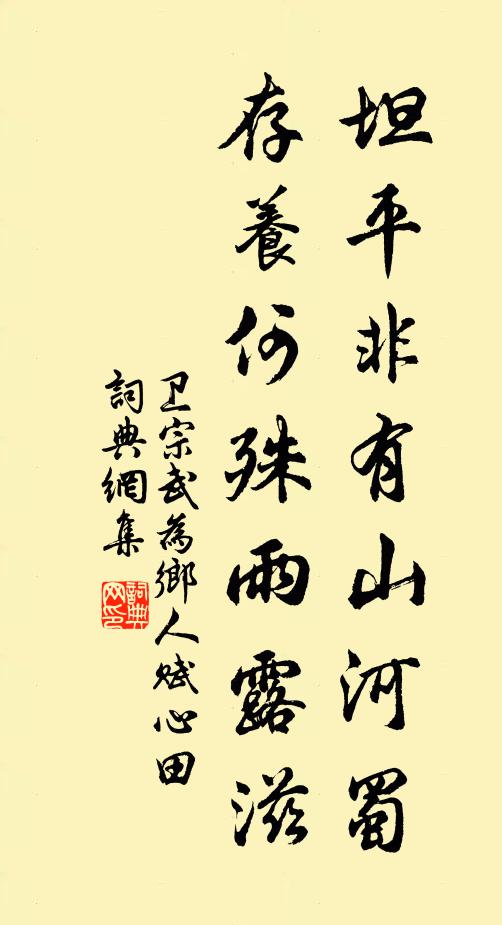 坦平非有山河蜀
存養何殊雨露滋
卫宗武為鄉人賦心田
詞典網集
詞典网印